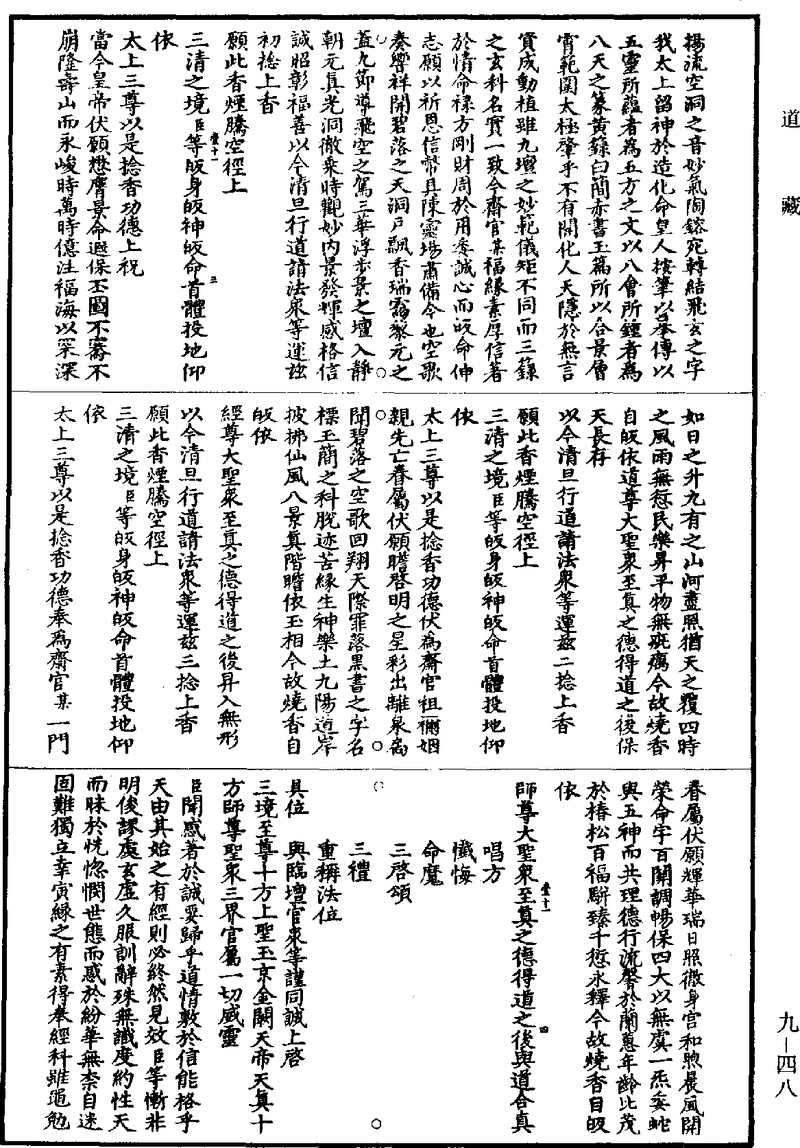 道藏
揚流空洞之音妙氣陶鎔宛轉結飛玄之字
我太上留神於造化命皇人按筆以摹傳以
五靈所蘊者為五方之文以八會所鍾者為
八天之篆黃籙白簡赤書玉篇所以合景層
霄範圍太極肇乎不有開化人天隱於無言
實成動植雖九壇之妙範儀矩不同而三籙
之玄科名實一致今齋官某福緣素厚信著
於情命祿方剛財周於用委誠心而皈命伸
志願以祈恩信幣具陳靈場肅備今也空歌
奏響祥開碧落之天洞戶飄香瑞靄黎元之
蓋九節導飛空之駕三華浮步景之壇入靜
朝元真光洞徹乘時觀妙內景發輝感格信
誠昭彰福善以今清旦行道請法衆等運茲
初捻上香
願此香煙騰空徑上
三清之境臣等皈身皈神皈命首體投地仰
壹十一
三
依
太上三尊以是捻香功德上祝
當今皇帝伏願懋膺景命遐保丕圖不騫不
崩隆壽山而永峻時萬時億注福海以深深
如日之升九有之山河盡照猶天之覆四時
之風雨無愆民樂昇平物無疵癘今故燒香
自皈依道尊大聖衆至真之德得道之後保
天長存
以今清旦行道請法衆等運茲二捻上香
願此香煙騰空徑上
三清之境臣等皈身皈神皈命首體投地仰
依
太上三尊以是捻香功德伏為齋官祖禰姻
親先亡眷屬伏願瞻啓明之星彩出離泉扃
聞碧落之空歌回翔天際罪落黑書之字名
標玉簡之科脫迹苦緣生神樂土九陽道岸
披拂仙風八景真階瞻依玉相今故燒香自
皈依
經尊大聖衆至真之德得道之後昇入無形
以今清旦行道請法衆等運茲三捻上香
願此香煙騰空徑上
三清之境臣等皈身皈神皈命首體投地仰
依
太上三尊以是捻香功德奉為齋官某一門
眷屬伏願輝華瑞日照徹身宮和煦晨風開
榮命宇百關調暢保四大以無虞一炁妥蛇
與五神而共理德行流馨於蘭蕙年齡比茂
於椿松百福駢臻千愆永釋今故燒香自皈
依
師尊大聖衆至真之德得道之後與道合真
壹十一
四
唱方
懺悔
命魔
三啓頌
三禮
重稱法位
具位　與臨壇官衆等謹同誠上啓
三境至尊十方上聖玉京金闕天帝天真十
方師尊聖衆三界官屬一切威靈
臣聞感著於誠爰歸乎道情敷於信能格乎
天由其始之有經則必終然見效臣等慚非
明俊謬處玄虛久服訓辭殊無識度約性天
而昧於恍惚憫世態而惑於紛華無柰自迷
固難獨立幸寅緣之有素得奉經科雖黽勉
九—四八